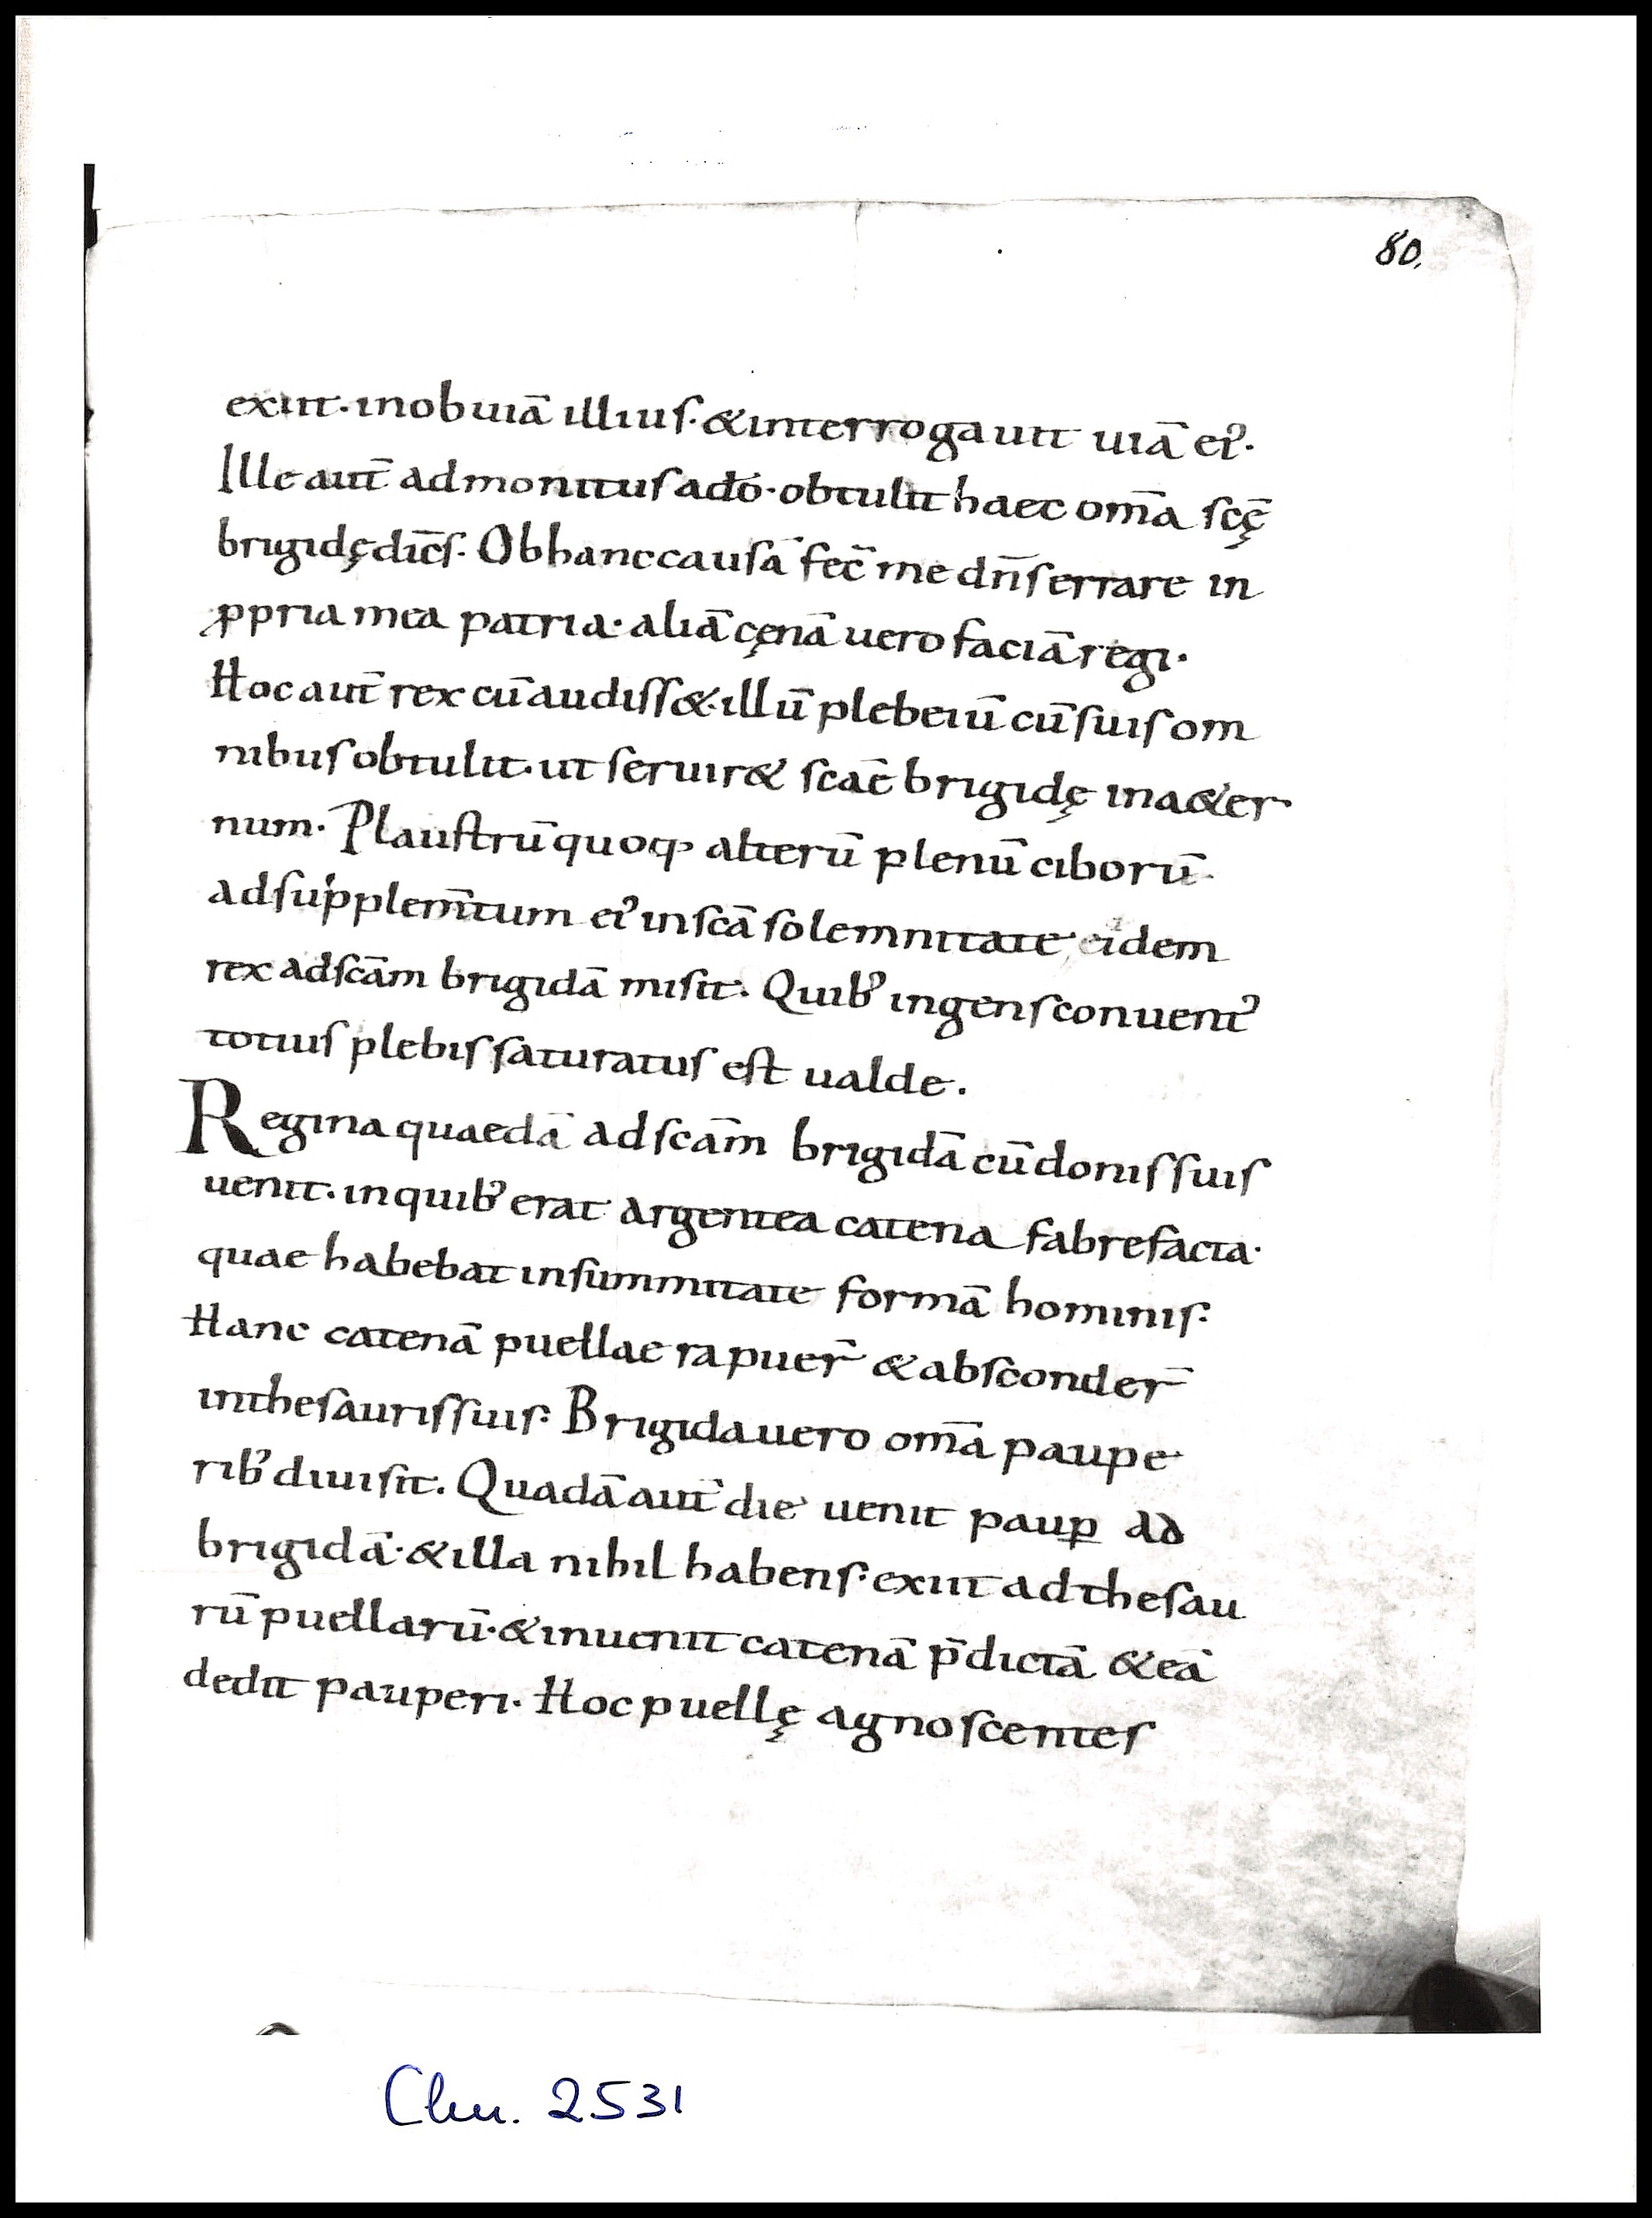 80.
exiit. in obuiā illius. & interrogauit uiā ei᾽.
Ille aut̄ admonitus a dō. obtulit haec om̄a scę̄
brigidę dic̄s. Ob hanc causā fec̄ me dn̄s errare in
ꝓpria mea patria. aliā cęnā uero faciā regi.
Hoc aut̄ rex cū audiss&. illū plebeiū cū suis om
nibus obtulit. ut seruir& sc̄ae brigidę in a&er
num. Plaustrū quoq; alterū plenū ciborū
ad supplem̄tum ei᾽ in sc̄a solemnitate eidem
rex ad sc̄am brigidā misit. Quib᾽ ingens conuent᾽
totius plebis saturatus est ualde.
Regina quaedā ad sc̄am brigidā cū donis suis
uenit. in quib᾽ erat argentea catena fabrefacta.
quae habebat in summitate formā hominis.
Hanc catenā puellae rapuer̄ & absconder̄
in thesauris suis. Brigida uero om̄a paupe
rib᾽ diuisit. Quadā aut̄ die uenit paup̱ ad
brigidā. & illa nihil habens. exiit ad thesau
rū puellarū. & inuenit catenā p̄dictā & eā
dedit pauperi. Hoc puellę agnoscentes
Clm. 2531